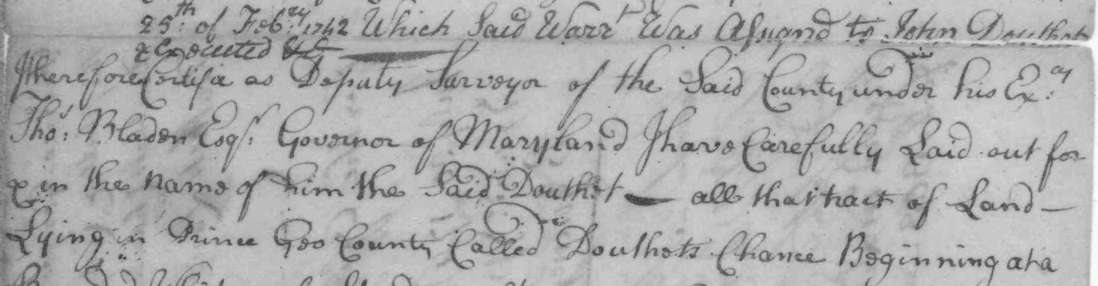 25th of Febry 1742 Which Said Warrt Was Asignd to John Douthet
& Executed &c
I therefore Certifie as Deputy Surveyor of the Said County under his Excy
Thos: Bladen Esqr: Governor of Maryland I have Carefully Laid out for
& in the Name of him the Said Douthet — all that tract of Land —
Lying in Prince Geo County Called Douthets Chance Beginning at a